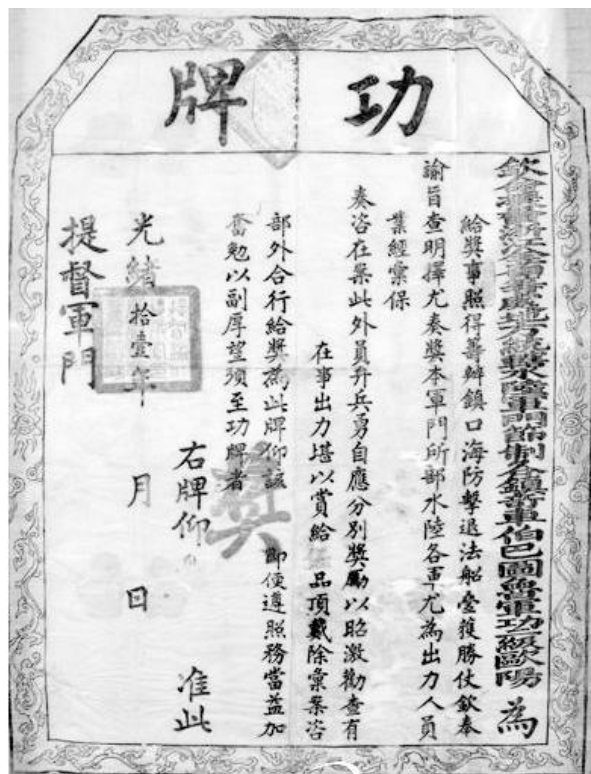 功牌
欽命提督浙江全省等處地方統轄水陸軍門節制各鎮車伯巴圖魯軍功級歐陽 為
給獎事照得籌辦鎮口海防擊退法船叠獲勝仗欽奉
諭旨查明擇尤奏獎本軍門所部水陸各軍尤為出力人員
業經彙保
奏咨在案此外員弁兵勇自應分別獎勵以昭激勸查有
在事出力堪以賞給 品頂戴除彙案咨
部外合行給獎為此牌仰該 即便遵照務當益加
奮勉以副厚望須至功牌者
獎
右牌仰 准此
光緒拾壹年 月 日
提督軍門